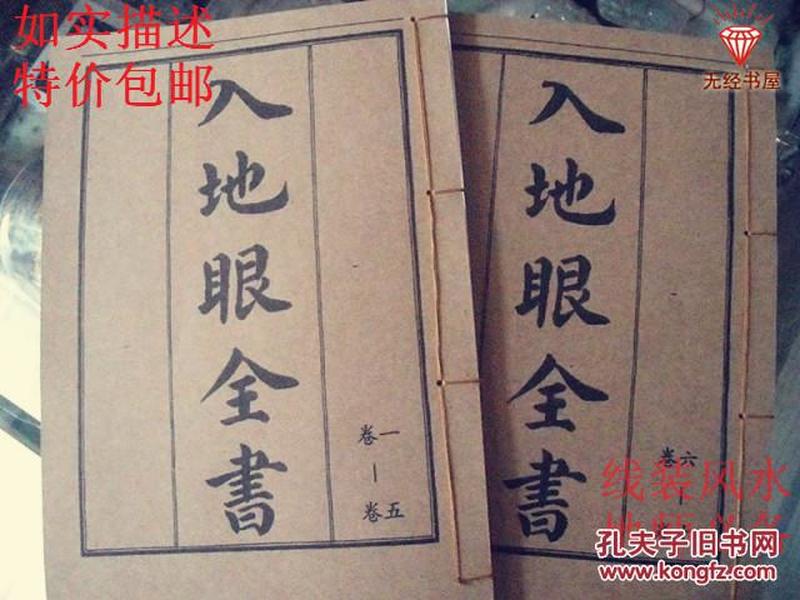 如实描述
特价包邮
无经书屋
入地眼全書
卷一
|
卷五
入地眼全書
卷六
线装风水
孔夫子旧书网
www.kongfz.com